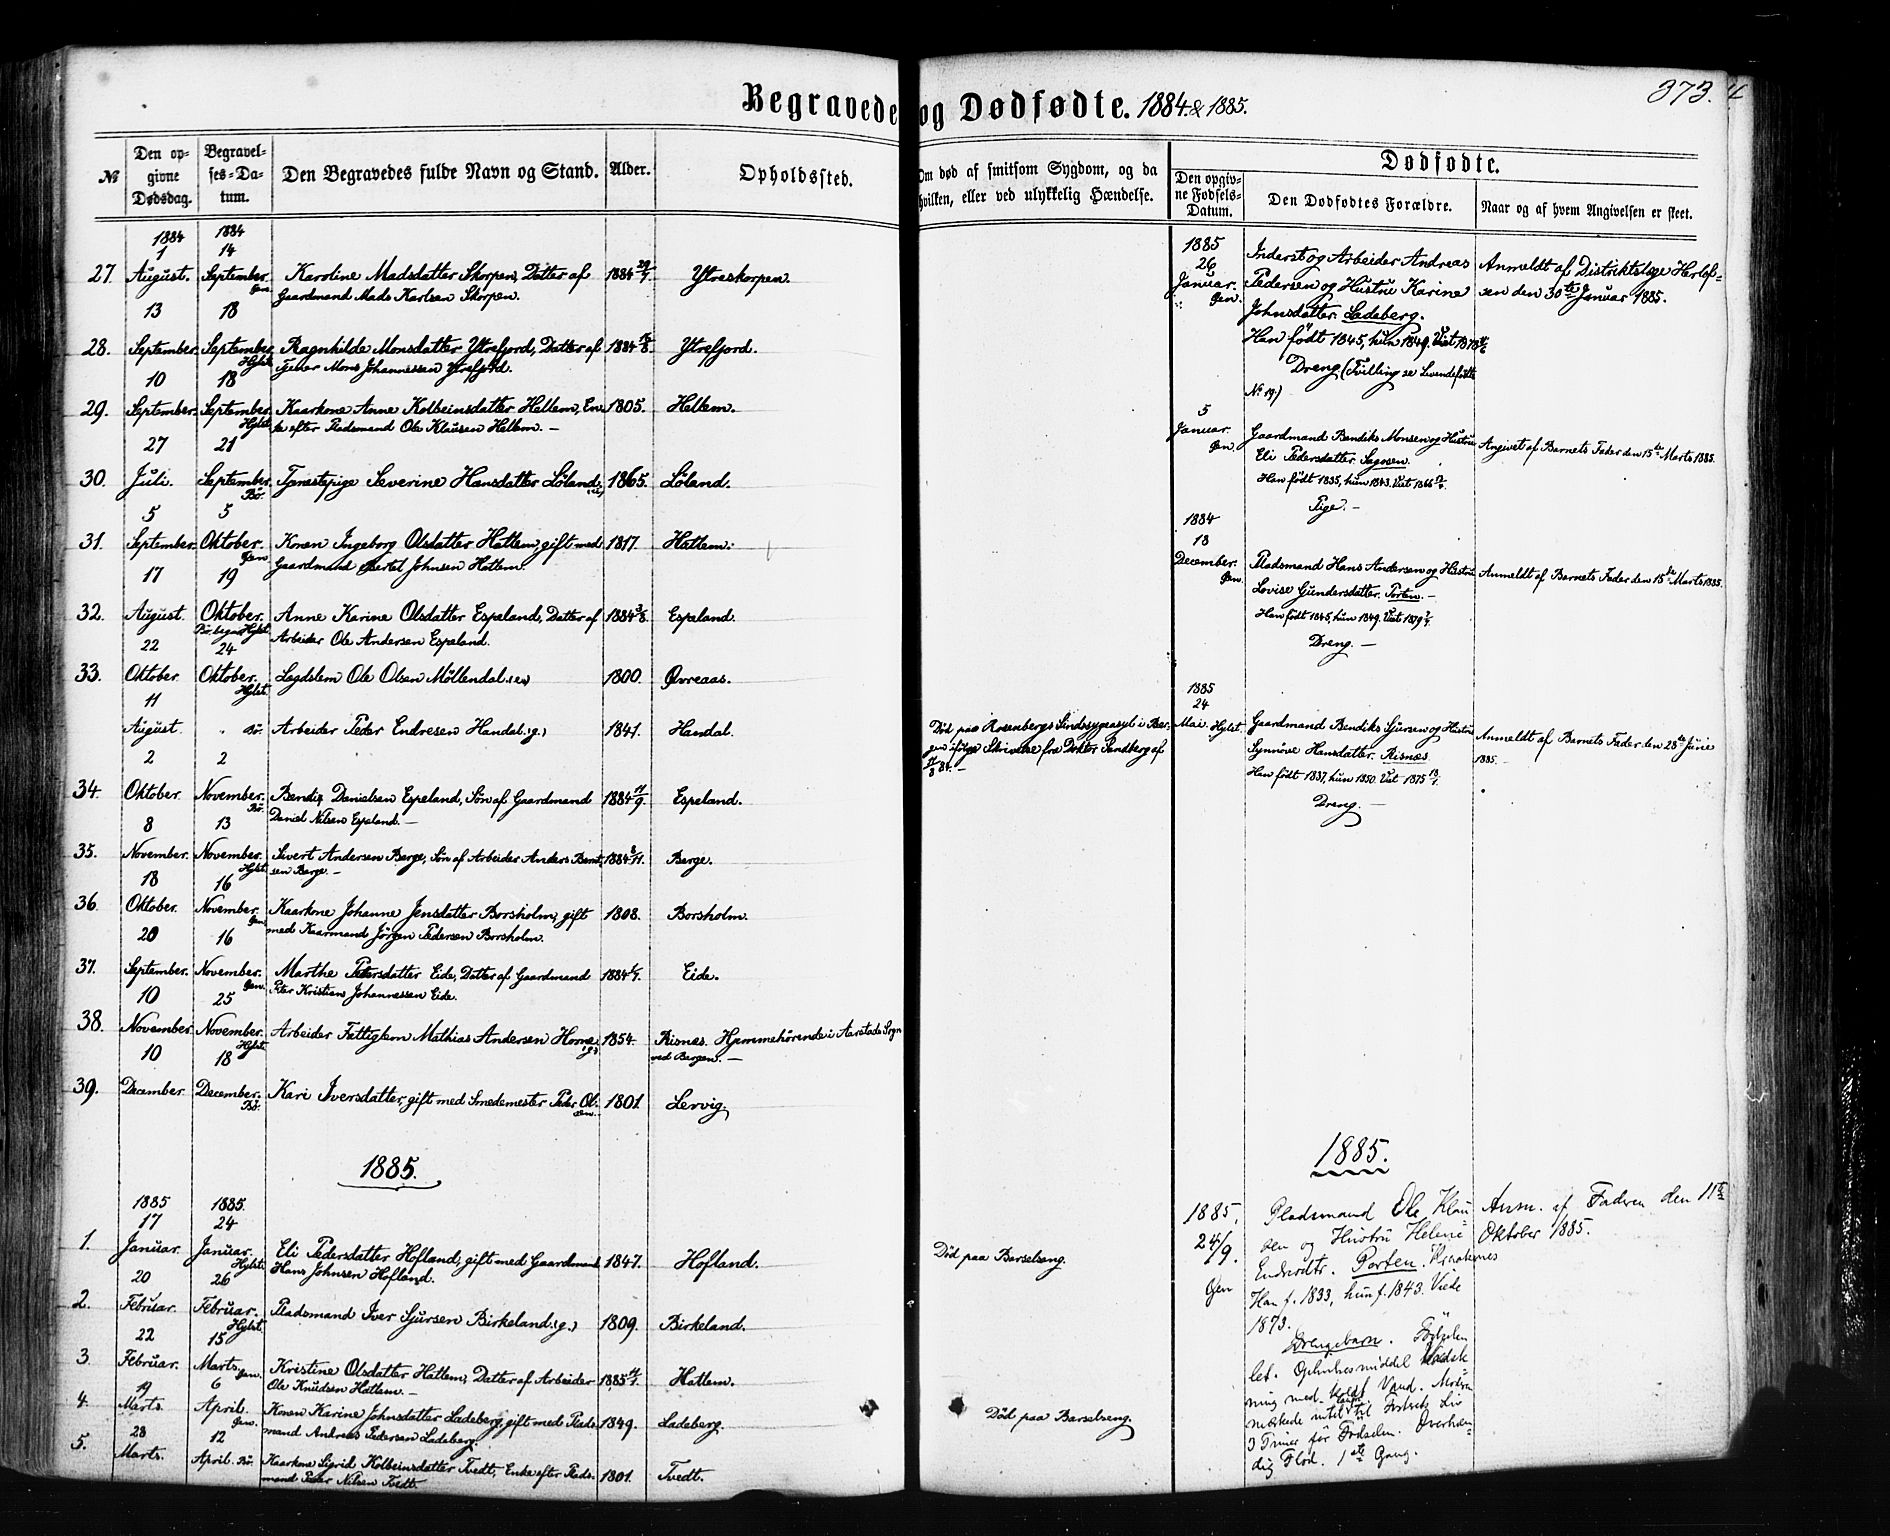 Begravede og Dødfødte. 1884 & 1885.
373.
№
Den opgivne Dødsdag.
Begravelses-Datum.
Den Begravedes fulde Navn og Stand.
Alder.
Opholdssted.
Om død af smitsom Sygdom, og da hvilken, eller ved ulykkelig Hændelse.
Dødfødte.
Den opgivne Fødsels-Datum.
Den Dødfødtes Forældre.
Naar og af hvem Angivelsen er skeet.
1884 1884
1 14
27. August. September Karoline Madsdatter Skorpen, Datter af 1884 29/7. Ytreskorpen.
Gen. Gaardmand Mads Karlsen Skorpen.
13 18
28. September. September Ragnhilde Monsdatter Ytrefjord, Datter af 1884 Ytrefjord.
Hylst. Mons Johannessen Ytrefjord.
10 18
29. September. September Kaarkone Anne Kolbeinsdatter Hellem, En- 1805. Hellem.
Hylst. ke efter Pladsmand Ole Klausen Hellem. —
27 21
30. Juli. September Tjenestepige Severine Hansdatter Løland. 1865. Løland.
Bø.
5 5
31. September. Oktober. Konen Ingeborg Olsdatter Hattem, gift med 1817. Hattem.
Gen. Gaardmand Bertel Johnsen Hattem.
17 19
32. August. Oktober. Anne Karine Olsdatter Espeland, Datter af 1884 3/8. Espeland.
Hylst. Arbeider Ole Andersen Espeland.
22 24
33. Oktober. Oktober. Lægdslem Ole Olsen Møllendal. 1800. Øvreaas.
Hylst.
11
August. Bø. Arbeider Peder Endresen Handal. (g.) 1841. Handal. Død paa Rosenbergs Sindssygeasyl i Ber-
gen ifølge Skrivelse fra Doktor Sandberg af
2 2
34. Oktober. November. Bendix Danielsen Espeland, Søn af Gaardmand 1884 Espeland.
Bø. Daniel Nilsen Espeland. —
8 13
35. November. November. Sivert Andersen Berge, Søn af Arbeider Anders Bernt- 1884 Berge.
Hylst. sen Berge. —
18 16
36. Oktober. November. Kaarkone Johanne Jensdatter Borsholm, gift 1808. Borsholm.
Gen. med Kaarmand Jørgen Pedersen Borsholm.
20 16
37. September. November. Marthe Petersdatter Eide, Datter af Gaardmand 1884 Eide.
Gen. Peter Kristian Johannessen Eide.
10 25
38. November. November. Arbeider Fattiglem Mathias Andersen Horne 1854. Risnes. Hjemmehørende i Aarstads Sogn
Hylst. ved Bergen. —
10 18
39. December. December. Kari Iversdatter, gift med Smedemester Peder Ol- 1801. Lervig.
Bø. sen.
1885.
1885 1885.
17 24
1. Januar. Januar. Eli Pedersdatter Hofland, gift med Gaardmand 1847. Hofland. Død paa Barselseng.
Hylst. Hans Johnsen Hofland.
20 26
2. Februar. Februar. Pladsmand Iver Sjursen Birkeland. (g.) 1809. Birkeland.
Hylst.
22 15
3. Februar. Marts. Gen. Kristine Olsdatter Hattem, Datter af Arbeider 1885 Hattem.
Ole Knudsen Hattem. —
19 6
4. Marts. April. Konen Karine Johnsdatter Ladeberg, gift med Plads- 1849. Ladeberg. Død paa Barselseng.
Gen. mand Andreas Pedersen Ladeberg.
28 12
5. Marts. April. Bø. Kaarkone Sigrid Kolbeinsdatter Tvedt, Enke efter Plads- 1801. Tvedt.
mand Peder Nilsen Tvedt.
1885
26
Januar.
Gen.
Inderst og Arbeider Andreas
Pedersen og Hustru Karine
Johnsdatter Ladeberg.
Han født 1845, hun 1849. Viet 1878
Dreng (Tvilling se Levendefødte
№ 19.)
Anmeldt af Distriktslæge Herlof-
sen den 30te Januar 1885.
5
Januar.
Gen.
Gaardmand Bendiks Monsen og Hustru
Eli Pedersdatter Sagosen.
Han født 1835, hun 1843. Viet 1866
Pige. —
Angivet af Barnets Fader den 15de Marts 1885.
1884
18
December.
Gen.
Pladsmand Hans Andersen og Hustru
Lovise Gundersdatter. Porten. —
Han født 1845, hun 1849. Viet 1879
Dreng. —
Anmeldt af Barnets Fader den 15de Marts 1885.
1885
24
Mai. Hylst.
Gaardmand Bendiks Sjursen og Hustru
Synnøve Hansdatter. Risnæs.
Han født 1837, hun 1850. Viet 1875
Dreng. —
Anmeldt af Barnets Fader den 28de Junie
1885. —
1885.
1885.
24/9.
Gen
Pladsmand Ole Klau
sen og Hustru Helene
Endresdtr. Porten.
Han f. 1833, hun f. 1843. Viede
1873.
Drengebarn. Fødselen
let. Oplivelsesmiddel
ning med koldt Vand. Moderen
mærkede intet til Fostrets Liv
3 Timer før Fødselen.
dig Flod. 1ste Gang.
Anm. af Faderen den 11te
Oktober 1885.